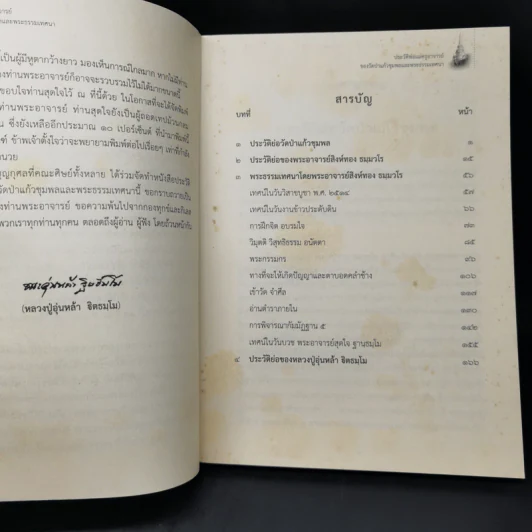 เป็นผู้มีหูตากว้างยาว มองเห็นการณ์ไกลมาก หากไม่มีท่าน
ท่านพระอาจารย์ก็อาจจะรวบรวมไว้ได้ไม่มากขนาดนี้
ขอบใจท่านสุดใจไว้ ณ ที่นี้ด้วย ในโอกาสที่จะได้จัดพิมพ์
ท่านพระอาจารย์ ท่านสุดใจยังเป็นผู้ถอดเทปม้วนก่อน
ซึ่งยังเหลืออีกประมาณ ๑๐ เปอร์เซ็นต์ ที่นำมาพิมพ์นี้
ข้าพเจ้าตั้งใจว่าจะพยายามพิมพ์ต่อไปเรื่อยๆ เท่าที่กำลัง
นวย
ญกุศลที่คณะศิษย์ทั้งหลาย ได้ร่วมจัดทำหนังสือประวัติ
วัดป่าแก้วชุมพลและพระธรรมเทศนานี้
ท่านพระอาจารย์ ขอความพ้นไปจากกองทุกข์และภัย
พวกเราทุกท่านทุกคน ตลอดถึงผู้อ่าน ผู้ฟัง โดยถ้วนหน้ากัน
(หลวงปู่อุ่นหล้า ฐิตธมฺโม)
ประวัติพ่อแม่ครูอาจารย์
ของวัดป่าแก้วชุมพลและพระธรรมเทศนา
สารบัญ
บทที่ หน้า
๑ ประวัติย่อวัดป่าแก้วชุมพล ๑
๒ ประวัติย่อของพระอาจารย์สิงห์ทอง ธมฺมวโร ๑๕
๓ พระธรรมเทศนาโดยพระอาจารย์สิงห์ทอง ธมฺมวโร ๕๖
เทศน์ในวันวิสาขบูชา พ.ศ. ๒๕๑๘ ๕๗
เทศน์ในวันงานข้าวประดับดิน ๖๖
การฝึกจิต อบรมใจ ๗๓
วิมุตติ วิสุทธิธรรม อนัตตา ๘๕
พระกรรมกร ๙๖
ทางที่จะให้เกิดปัญญาและตาบอดคลำช้าง ๑๐๖
เข้าวัด จำศีล ๑๑๗
อ่านตำราภายใน ๑๓๐
การพิจารณากัมมัฏฐาน ๕ ๑๔๒
เทศน์ในวันบวช พระอาจารย์สุดใจ ฐานธมฺโม ๑๕๕
๔ ประวัติย่อของหลวงปู่อุ่นหล้า ฐิตธมฺโม ๑๖๖